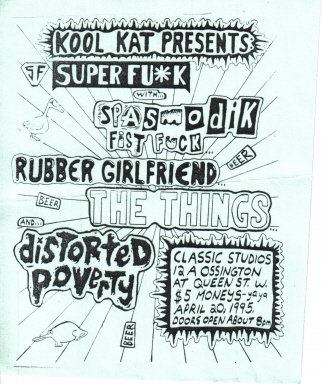 KOOL KAT PRESENTS
SUPER FU*K
WITH...
SPASMODIK
FIST FUCK...
BEER
RUBBER GIRLFRIEND...
BEER
THE THINGS...
AND...
distorted
poverty
BEER
CLASSIC STUDIOS
12 A OSSINGTON
AT QUEEN ST. W.
$5 MONEYS-ya ya
APRIL 20, 1995.
DOORS OPEN ABOUT 8pm